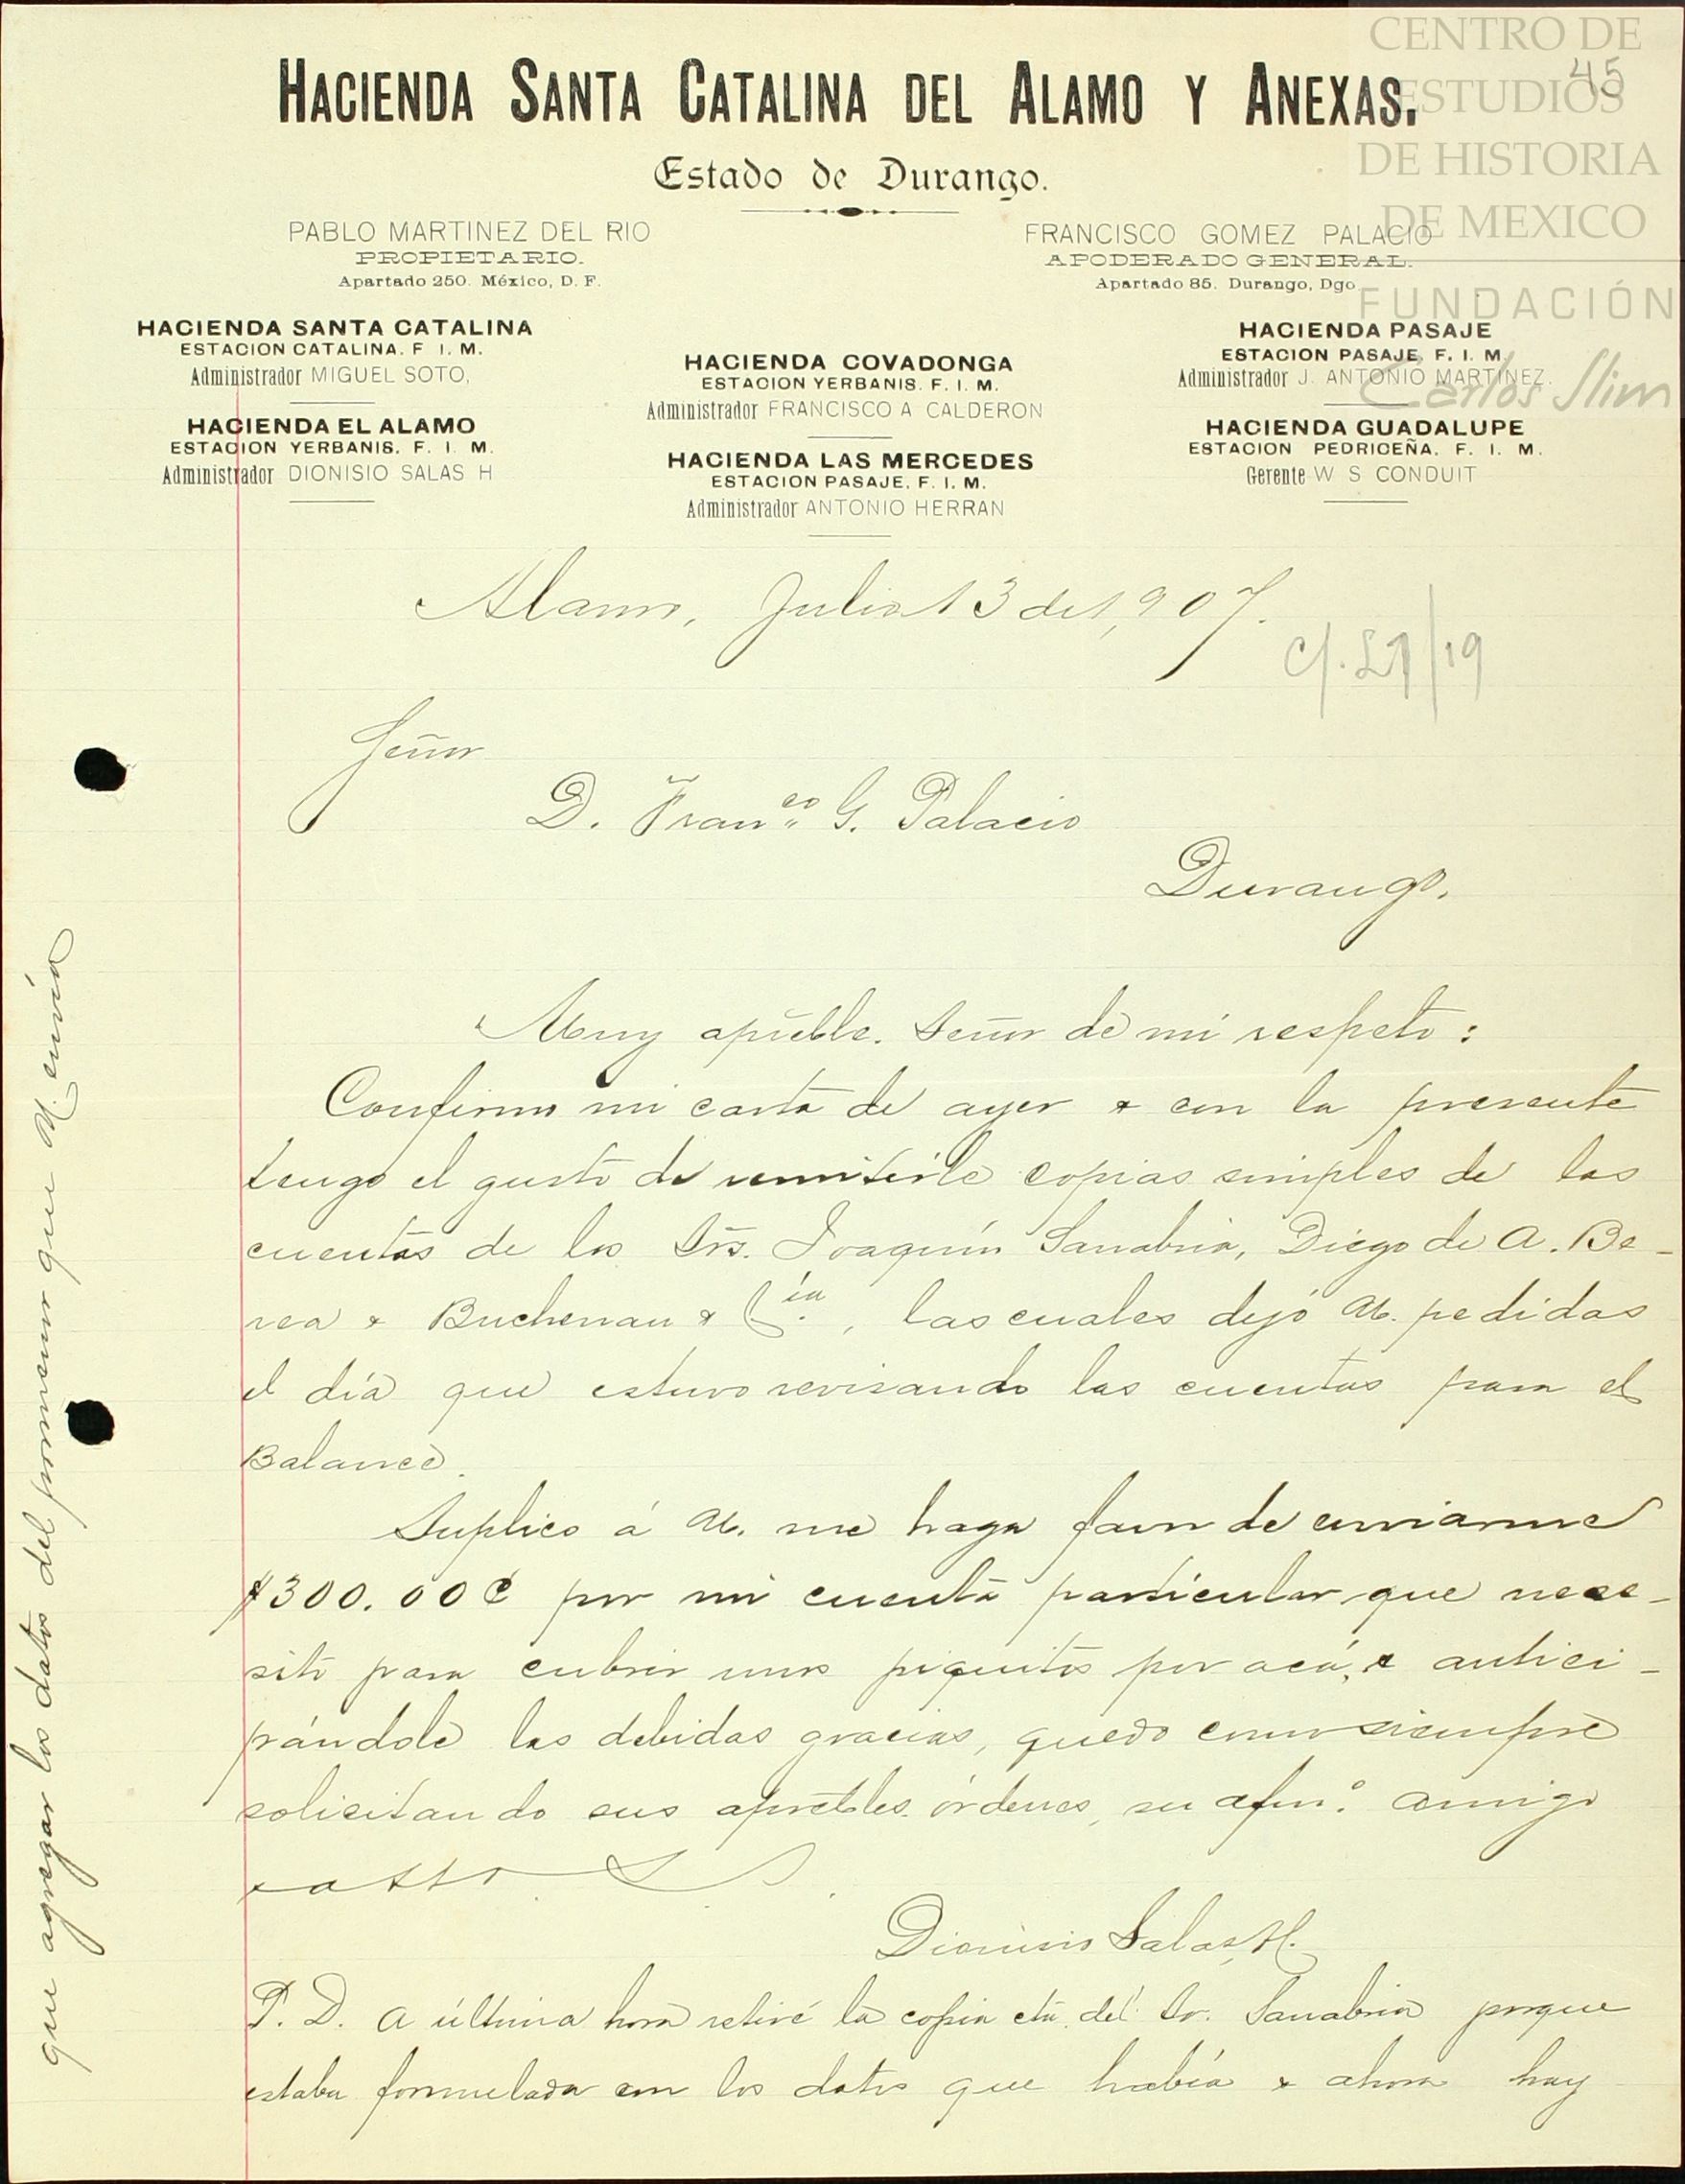 CENTRO DE
ESTUDIOS
DE HISTORIA
DE MEXICO
FUNDACIÓN
Carlos Slim
45
HACIENDA SANTA CATALINA DEL ALAMO Y ANEXAS.
Estado de Durango.
PABLO MARTINEZ DEL RIO
PROPIETARIO.
Apartado 250. México, D. F.
FRANCISCO GOMEZ PALACIO
APODERADO GENERAL.
Apartado 85. Durango, Dgo.
HACIENDA SANTA CATALINA
ESTACION CATALINA. F. I. M.
Administrador MIGUEL SOTO,
HACIENDA EL ALAMO
ESTACION YERBANIS. F. I. M.
Administrador DIONISIO SALAS H
HACIENDA COVADONGA
ESTACION YERBANIS. F. I. M.
Administrador FRANCISCO A CALDERON
HACIENDA LAS MERCEDES
ESTACION PASAJE. F. I. M.
Administrador ANTONIO HERRAN
HACIENDA PASAJE
ESTACION PASAJE. F. I. M.
Administrador J. ANTONIO MARTINEZ.
HACIENDA GUADALUPE
ESTACION PEDRICEÑA. F. I. M.
Gerente W S CONDUIT
Alamo, Julio 13 de 1,907.
Señor
D. Franco G. Palacio
Durango.
Muy apreble. Señor de mi respeto:
Confirmo mi carta de ayer & con la presente
tengo el gusto de remitirle copias simples de las
cuentas de los Srs. Joaquín Sanabria, Diego de A. Be-
rea & Buchenau & Cía., las cuales dejó U. pedidas
el día que estuvo revisando las cuentas para el
Balance.
Suplico á U. me haga favor de enviarme
$300.00¢ por mi cuenta particular que nece-
sito para cubrir unos piquitos por acá, & antici-
pándole las debidas gracias, quedo como siempre
solicitando sus aprebles. órdenes, su afmo. amigo
& atto. S. S.
Dionisio Salas H.
P. D. A última hora retiré la copia cta. del Sr. Sanabria porque
estaba formulada con los datos que había & ahora hay
que agregar los datos del pormenor que U. envía